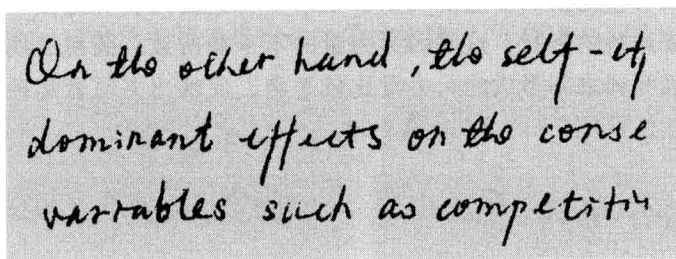 On the other hand, the self-
dominant effects on the conse
variables such as competitiv